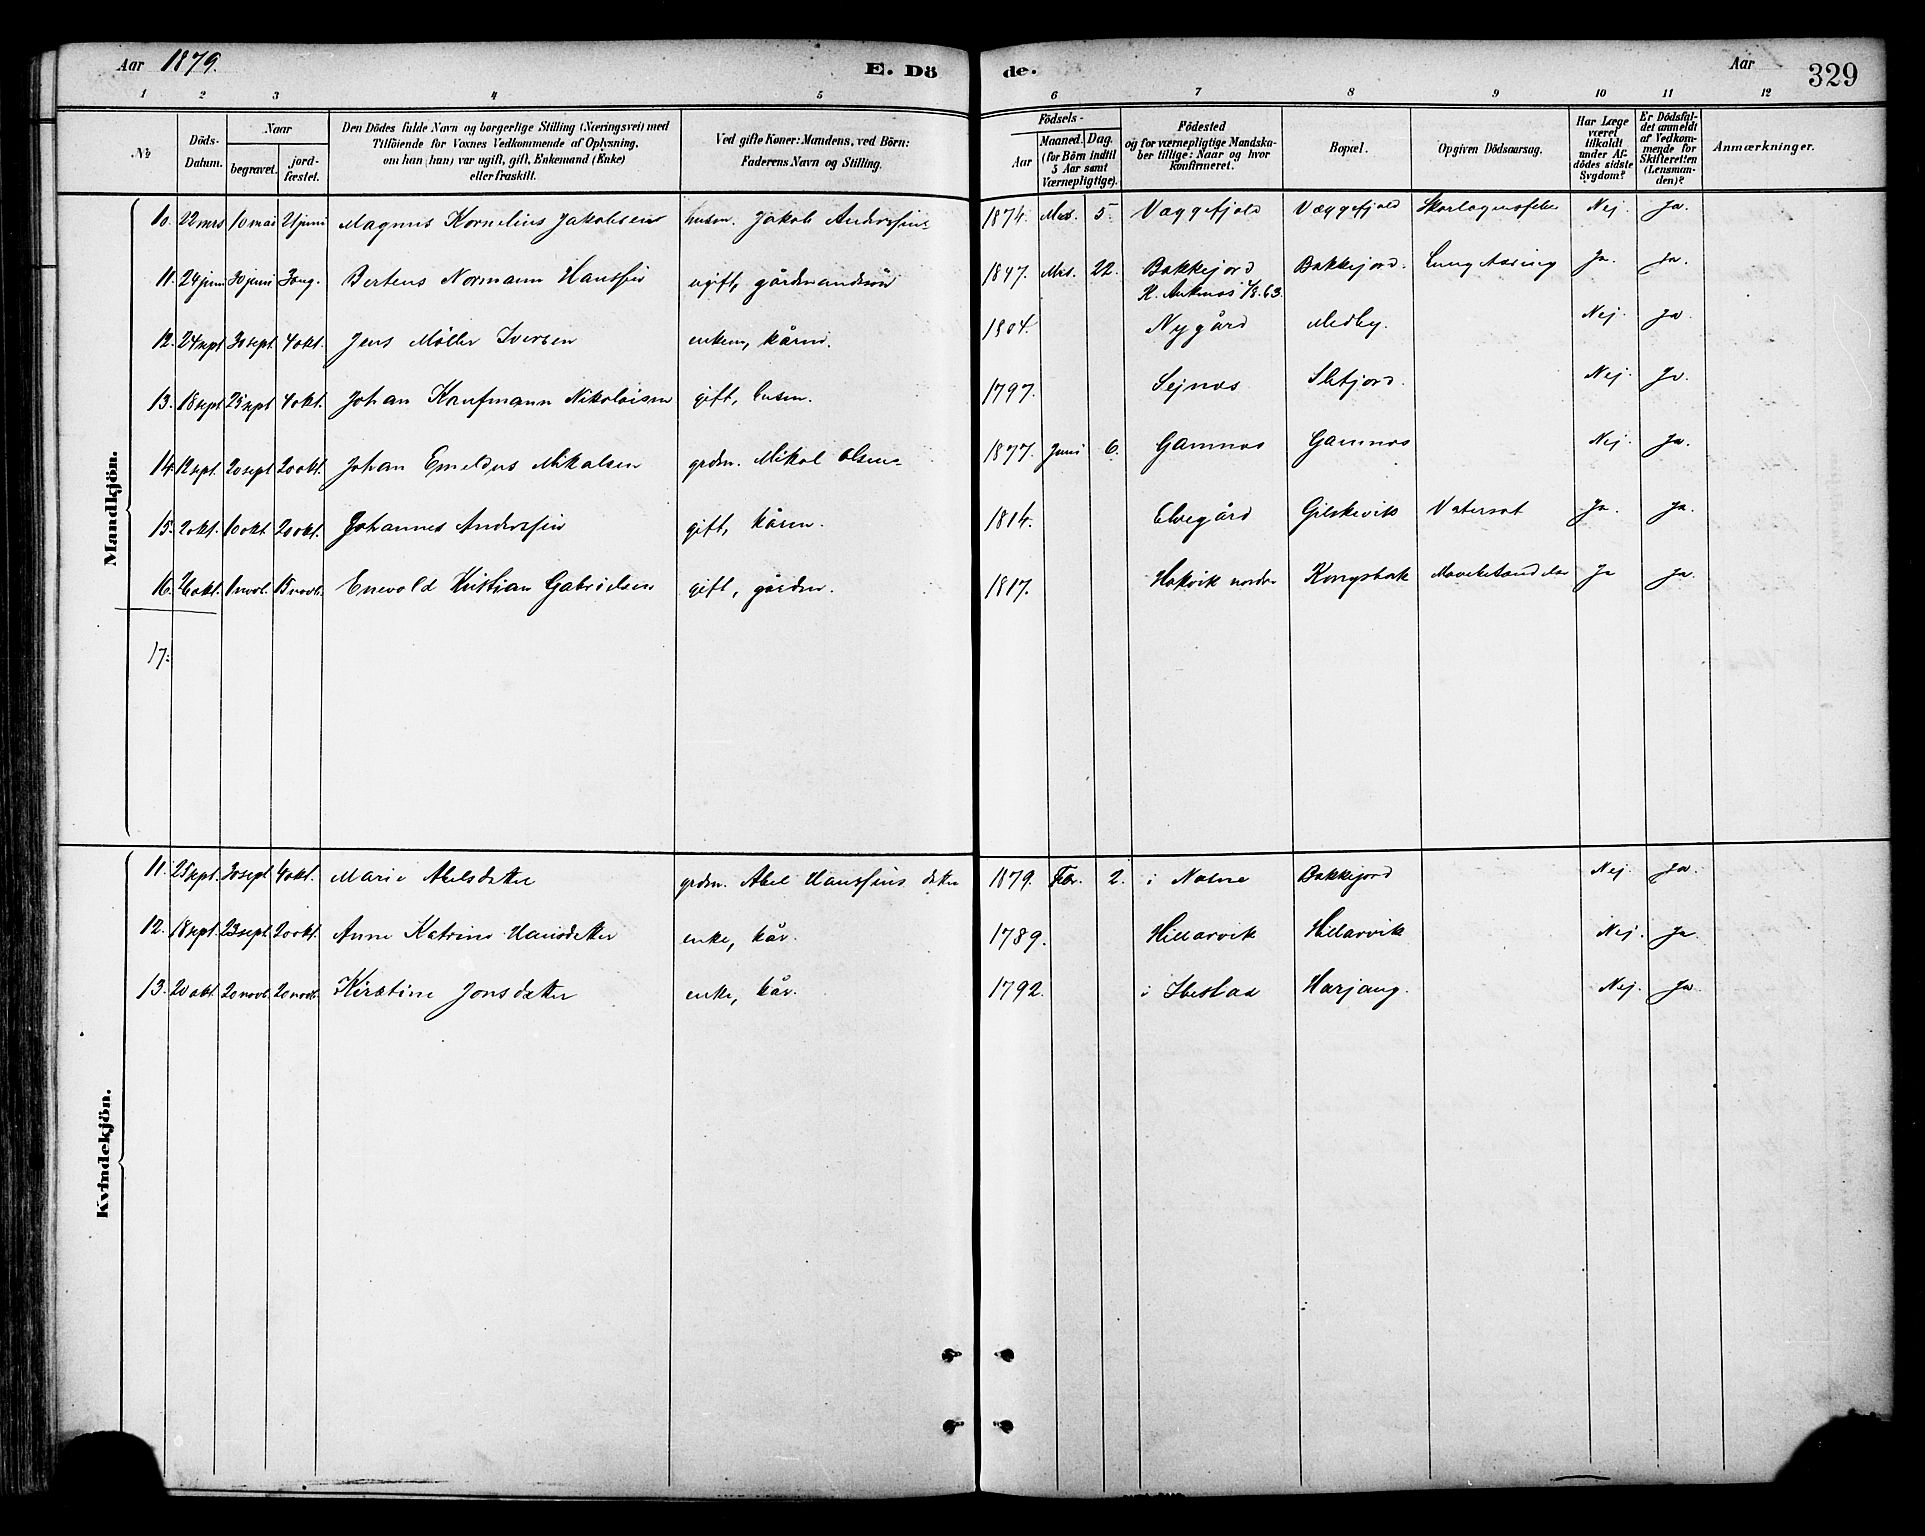 Aar 1879.
E. Dö
de.
Aar
329
1 2 3 4 5 6 7 8 9 10 11 12
№
Döds-Datum.
Naar
begravet.
jord-fæstet.
Den Dödes fulde Navn og borgerlige Stilling (Næringsvei) med
Tilföiende for Voxnes Vedkommende af Oplysning,
om han (hun) var ugift, gift, Enkemand (Enke)
eller fraskilt.
Ved gifte Koner: Mandens, ved Börn:
Faderens Navn og Stilling.
Födsels-
Aar
Maaned. Dag.
(for Börn indtil
5 Aar samt
Værnepligtige).
Födested
og for værnepligtige Mandska-
ber tillige: Naar og hvor
konfirmeret.
Bopæl.
Opgiven Dödsaarsag.
Har Læge
været
tilkaldt
under Af-
dödes sidste
Sygdom?
Er Dödsfal-
det anmeldt
af Vedkom-
mende for
Skifteretten
(Lensman-
den)?
Anmærkninger.
Mandkjön.
10. 22 mrs 10 mai 21 juni Magnus Kornelius Jakobsen husm. Jakob Anderssens 1874. Mrs. 5. Væggefjeld Væggefjeld Skarlagensfeber Nej. Ja.
11. 24 juni 30 juni 3 aug. Bertens Normann Hanssen ugift, gårdmandssön 1847. Mrs. 22. Bakkejord Bakkejord. Lungetæring Ja. Ja.
K. Ankenes 1/8.63.
12. 24 sept 30 sept 4 okt. Jens Möller Iversen enkem, kårm. 1804. Nygård Medby. Nej. Ja.
13. 18 sept 25 sept 4 okt. Johan Kaufmann Nikolaisen gift, husm. 1797. Sejnæs Skjord. Nej. Ja.
14. 12 sept. 20 sept 20 okt. Johan Emeldus Mikalsen grdm. Mikal Olsens 1877. Juni 6. Gamnæs Gamnæs Nej. Ja.
15. 2 okt. 10 okt 20 okt. Johannes Anderssen gift, kårm. 1814. Elvegård Gilskevik Vatersot Ja. Ja.
16. 26 okt. 1 novb. 15 novb. Enevold Kristian Gabrielsen gift, gårdm. 1817. Håkvik nordre Kongsbak Ja Ja.
17.
Kvindekjön.
11. 25 sept. 30 sept 4 okt. Marie Abelsdatter grdm. Abel Hanssens datter 1879. Febr. 2. i Bakkejord Nej. Ja.
12. 18 sept. 23 sept. 20 okt. Anne Katrine Hansdatter enke, kår. 1789. Hillarvik Hillarvik Nej. Ja.
13. 20 okt. 20 novb. 20 novb. Kirstine Jonsdatter enke, kår. 1792. i Ibestad Harjang. Nej. Ja.